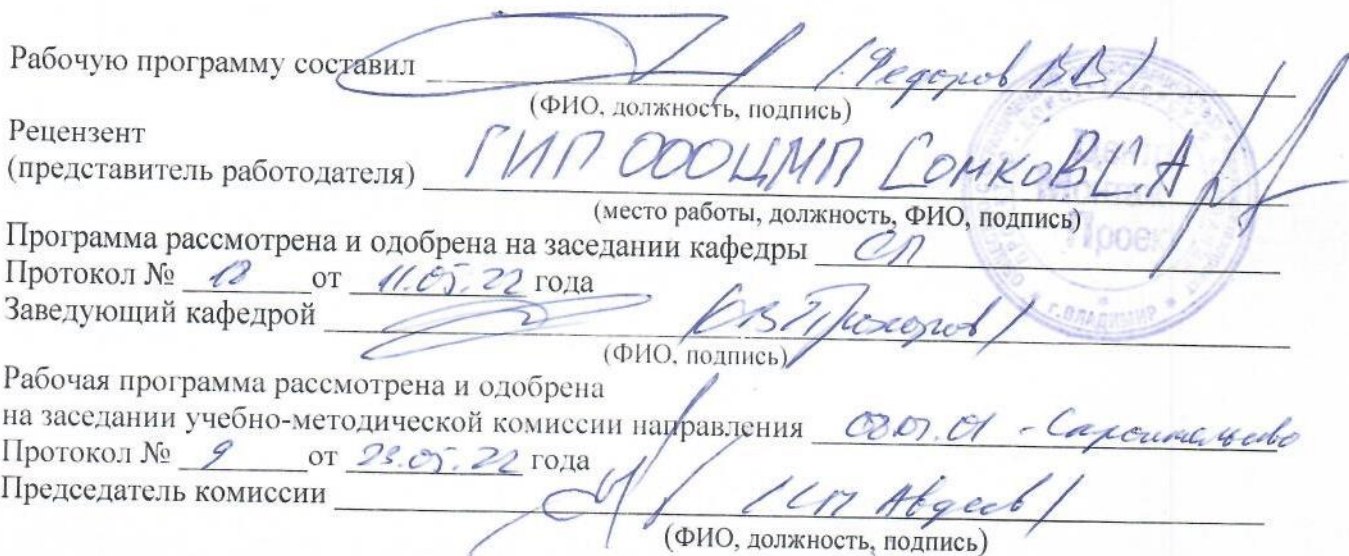 Рабочую программу составил (Федоров ВВ)
(ФИО, должность, подпись)
Рецензент
(представитель работодателя) ГИП ООО ЦМП Сомков С.А
(место работы, должность, ФИО, подпись)
Программа рассмотрена и одобрена на заседании кафедры СП
Протокол № от 11.05.22 года
Заведующий кафедрой Прохоров)
(ФИО, подпись)
Рабочая программа рассмотрена и одобрена
на заседании учебно-методической комиссии направления 08.01 - Строительство
Протокол № 9 от 23.05.22 года
Председатель комиссии (СН Авдеев)
(ФИО, должность, подпись)
Проект
г.ВЛАДИМИР